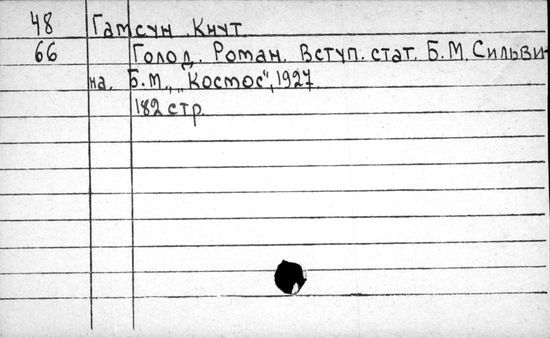 48 Гамсун Кнут.
66 Голод. Роман. Вступ. стат. Б.М. Сильви-
на. Б.М., "Космос", 1927.
182 стр.